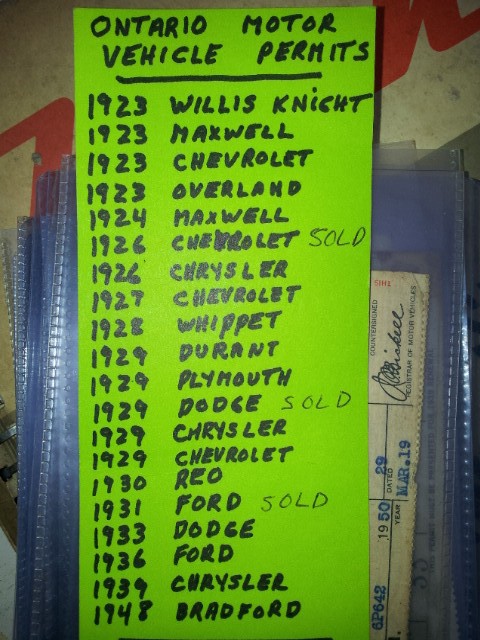 ONTARIO MOTOR
VEHICLE PERMITS
1923 WILLIS KNIGHT
1923 MAXWELL
1923 CHEVROLET
1923 OVERLAND
1924 MAXWELL
1926 CHEVROLET SOLD
1926 CHRYSLER
1927 CHEVROLET
1928 WHIPPET
1929 DURANT
1929 PLYMOUTH
1929 DODGE SOLD
1929 CHRYSLER
1929 CHEVROLET
1930 REO
1931 FORD SOLD
1933 DODGE
1936 FORD
1939 CHRYSLER
1948 BRADFORD
THIS
COUNTERSIGNED
REGISTRAR OF MOTOR VEHICLES
1950 29
DATED
MAR.19
YEAR
6P642